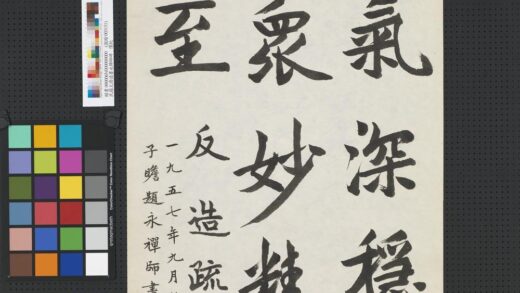 氣深穩
眾妙精
至
反造疏
一九五七年九月
子瞻題永禪師書